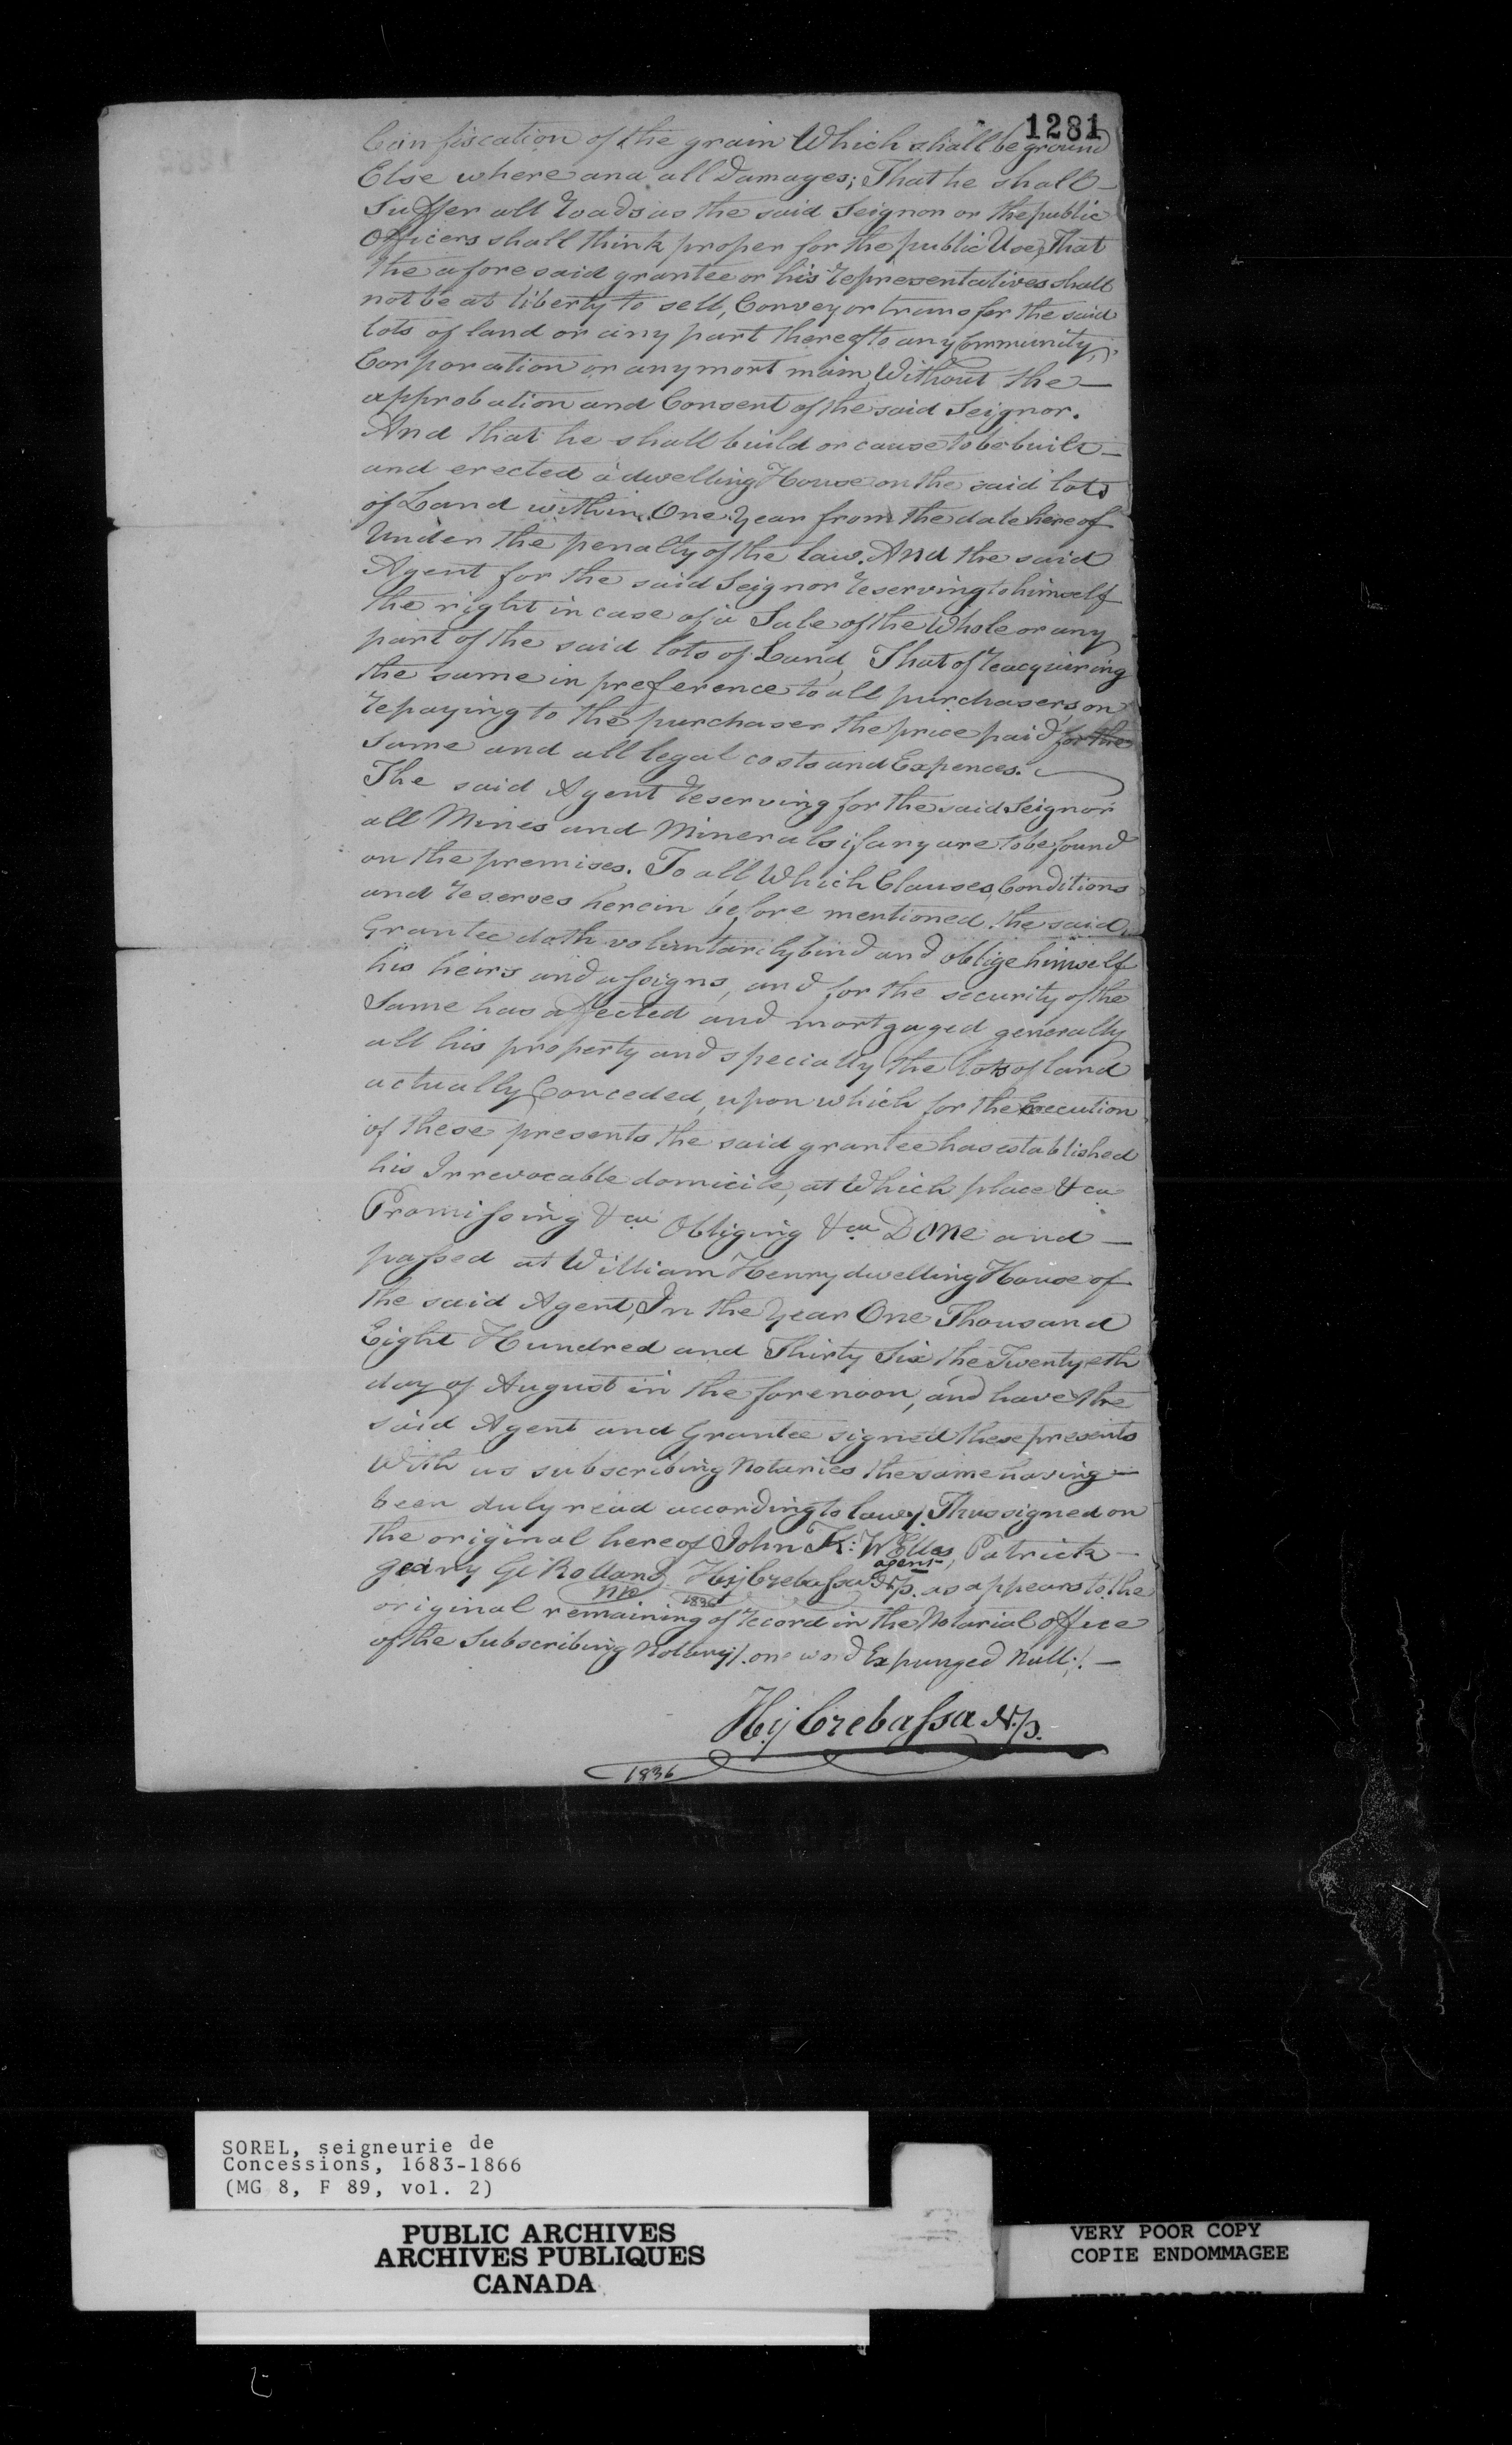 1281
Confiscation of the grain Which shall be ground
Else where and all Damages; That he shall —
Suffer all Roads as the said Seignor or the public
Officers shall think proper for the public Use, That
the aforesaid grantee or his representatives shall
not be at liberty to sell, Convey or transfer the said
lots of land or any part thereof to any Community,
Corporation or any mort main, Without the —
approbation and Consent of the said Seignor.
And that he shall build or cause to be built —
and erected a dwelling House on the said lots
of Land within One Year from the date hereof
Under the penalty of the law. And the said
Agent for the said Seignor reserving to himself
the right in case of a Sale of the Whole or any
part of the said lots of Land, That of reacquiring
the same in preference to all purchasers on
repaying to the purchaser the price paid for the
same and all legal costs and Expences. —
The said Agent reserving for the said Seignor
all Mines and Minerals if any are to be found
on the premises. To all Which Clauses, Conditions
and reserves herein before mentioned the said
Grantee doth voluntarily bind and oblige himself
his heirs and assigns, and for the security of the
Same has affected and mortgaged generally
all his property and specially the lots of land
actually Conceded, upon which for the Execution
of these presents the said grantee has established
his Irrevocable domicile, at Which place &ca
Promissing &ca Obliging &ca Done and —
passed at William Henry dwelling House of
the said Agent, In the Year One Thousand
Eight Hundred and Thirty Six the Twentyeth
day of August in the forenoon, and have the
said Agent and Grantee signed these presents
With us subscribing Notaries the same having —
been duly read according to law./. Thus signed on
the original hereof John K: Welles, Patrick —
agent
geary Gl Rolland Hy Crebassa N.p. as appears to the
NP 1836
original remaining of record in the Notarial office
of the Subscribing Notary/. one word Expunged Null./. —
Hy Crebassa N.p.
1836
SOREL, seigneurie de
Concessions, 1683-1866
(MG 8, F 89, vol. 2)
PUBLIC ARCHIVES
ARCHIVES PUBLIQUES
CANADA
VERY POOR COPY
COPIE ENDOMMAGEE
VERY POOR COPY